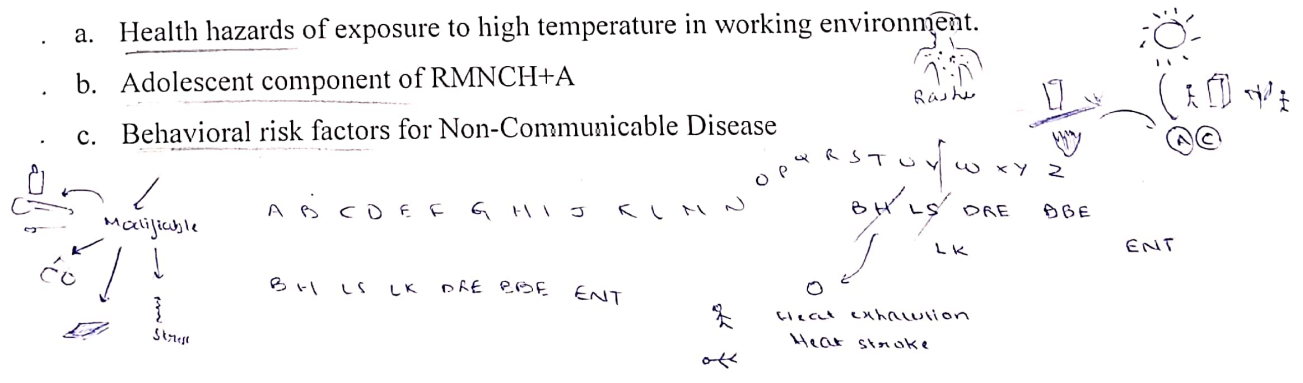 a. Health hazards of exposure to high temperature in working environment.
b. Adolescent component of RMNCH+A
c. Behavioral risk factors for Non-Communicable Disease
A C
Modifiable
A B C D E F G H I J K L M N O P Q R S T U V W X Y Z
BH LS DRE BBE
LK ENT
BH LS LK DRE BBE ENT
Stress
Heat exhaustion
Heat stroke